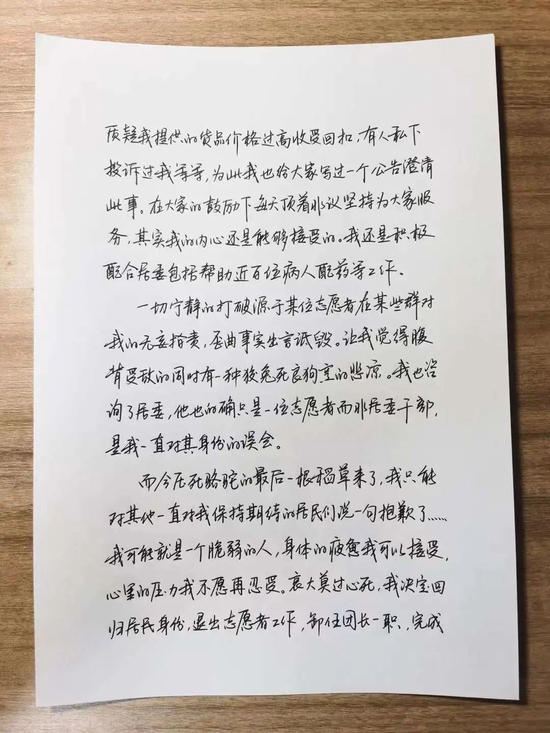 质疑我提供的货品价格过高收受回扣，有人私下
投诉过我等等，为此我也给大家写过一个公告澄清
此事。在大家的鼓励下每天顶着非议坚持为大家服
务，其实我的内心还是能够接受的。我还是积极
配合居委包括帮助近百位病人配药等工作。
一切宁静的打破源于某位志愿者在某些群对
我的无妄指责，歪曲事实出言诋毁。让我觉得腹
背受敌的同时有一种狡兔死良狗烹的悲凉。我也咨
询了居委，他也的确只是一位志愿者而非居委干部，
是我一直对其身份的误会。
而今压死骆驼的最后一根稻草来了，我只能
对其他一直对我保持期待的居民们说一句抱歉了……
我可能就是一个脆弱的人，身体的疲惫我可以接受，
心里的压力我不愿再忍受。哀大莫过心死，我决定回
归居民身份，退出志愿者工作，卸任团长一职，完成